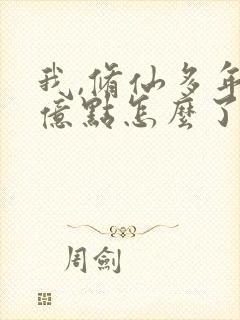 我,脩仙多年
億點怎麼了
周劍